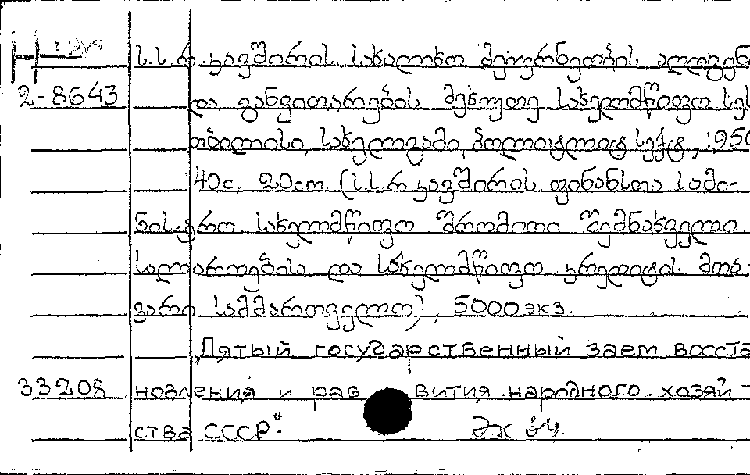 ს.ს.რ. კავშირის სახალხო მეურნეობის აღდგენ
2-8643 და განვითარების მეხუთე სახელმწიფო სეს
თბილისი, სახელგამი, პოლიტლიტ. სექტ., 1950
40с. 20см. (ს.ს.რ. კავშირის ფინანსთა სამი-
ნისტრო სახელმწიფო შრომითი შემნახველი
სალაროებისა და სახელმწიფო კრედიტის მთა-
ვარი სამმართველო), 5000 экз.
"Пятый государственный заем восста
33208 новления и раз вития народного хозяй-
ства СССР."